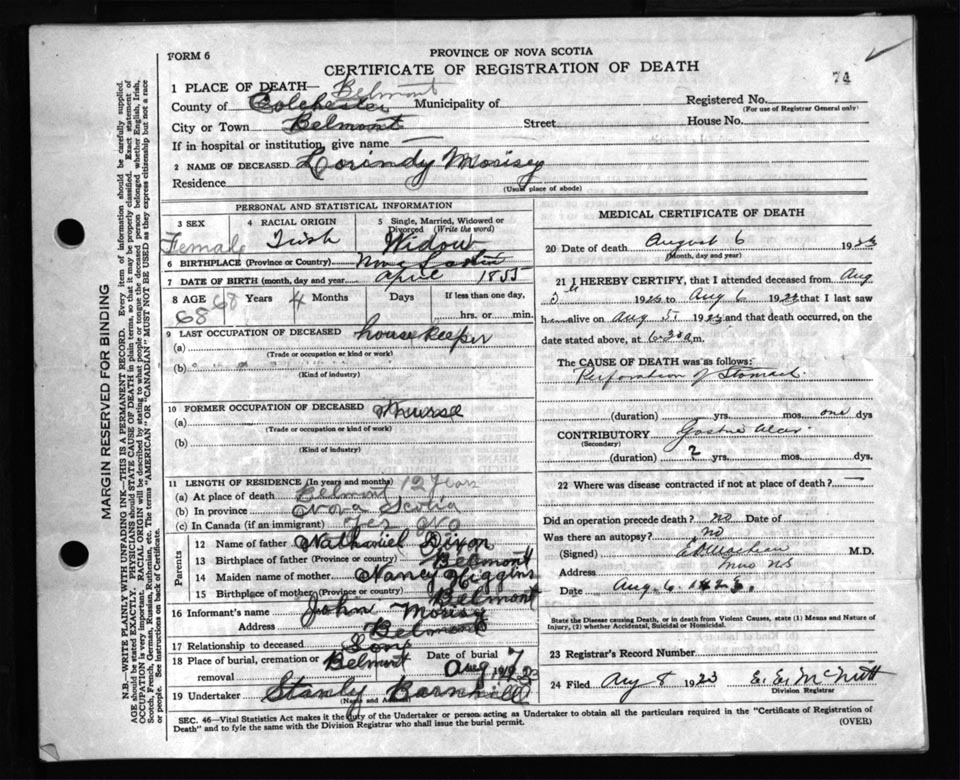 FORM 6
PROVINCE OF NOVA SCOTIA
CERTIFICATE OF REGISTRATION OF DEATH
74
1 PLACE OF DEATH— Belmont
County of Colchester Municipality of
Registered No.
(For use of Registrar General only)
City or Town Belmont Street House No.
If in hospital or institution, give name —
2 NAME OF DECEASED Lorindy Morisey
Residence
(Usual place of abode)
PERSONAL AND STATISTICAL INFORMATION
3 SEX Female
4 RACIAL ORIGIN Irish
5 Single, Married, Widowed or Divorced (Write the word) Widow
6 BIRTHPLACE (Province or Country) Nova Scotia
7 DATE OF BIRTH (month, day and year) April 1855
8 AGE 68 68 Years 4 Months Days
If less than one day,
hrs. or min.
9 LAST OCCUPATION OF DECEASED housekeeper
(a)
(Trade or occupation or kind or work)
(b)
(Kind of industry)
10 FORMER OCCUPATION OF DECEASED Nurse
(a)
(Trade or occupation or kind of work)
(b)
(Kind of industry)
11 LENGTH OF RESIDENCE (In years and months)
(a) At place of death Belmont 12 Years
(b) In province Nova Scotia
(c) In Canada (if an immigrant) Yes No
Parents
12 Name of father Nathaniel Dixon
13 Birthplace of father (Province or country) Belmont
14 Maiden name of mother Nancy Higgins
15 Birthplace of mother (Province or country) Belmont
16 Informant's name John Morisy
Address Belmont
17 Relationship to deceased Son
18 Place of burial, cremation or removal Belmont
Date of burial Aug 7 1923
19 Undertaker Stanly Barnhill
(Name and Address)
MEDICAL CERTIFICATE OF DEATH
20 Date of death August 6 1923
(Month, day and year)
21 I HEREBY CERTIFY, that I attended deceased from Aug
5 1923 to Aug 6 1923 that I last saw
h alive on Aug 5 1923 and that death occurred, on
date stated above, at 6.30 a.m.
The CAUSE OF DEATH was as follows:
Perforation of Stomach
(duration) yrs. mos. one dys
CONTRIBUTORY Gastric Ulcer
(Secondary)
(duration) 2 yrs. mos. dys.
22 Where was disease contracted if not at place of death? —
Did an operation precede death? no Date of
Was there an autopsy? no
(Signed) M.D.
Address NS
Date Aug. 6. 1923.
State the Disease causing Death, or in death from Violent Causes, state (1) Means and Nature of
Injury, (2) whether Accidental, Suicidal or Homicidal.
23 Registrar's Record Number
24 Filed Aug 8 1923 E. E. McNutt
Division Registrar
SEC. 46—Vital Statistics Act makes it the duty of the Undertaker or person acting as Undertaker to obtain all the particulars required in the "Certificate of Registration of
Death" and to fyle the same with the Division Registrar who shall issue the burial permit.
(OVER)
MARGIN RESERVED FOR BINDING
N.B.—WRITE PLAINLY WITH UNFADING INK—THIS IS A PERMANENT RECORD. Every item of information should be carefully supplied.
AGE should be stated EXACTLY. PHYSICIANS should STATE CAUSE OF DEATH in plain terms, so that it may be properly classified. Exact statement of
OCCUPATION is very important. RACIAL ORIGIN will be described by stating to what people or tongue the deceased person belonged whether English, Irish,
Scotch, French, German, Russian, Ruthenian, etc. The terms "AMERICAN" OR "CANADIAN" MUST NOT BE USED as they express citizenship but not a race
or people. See instructions on back of Certificate.